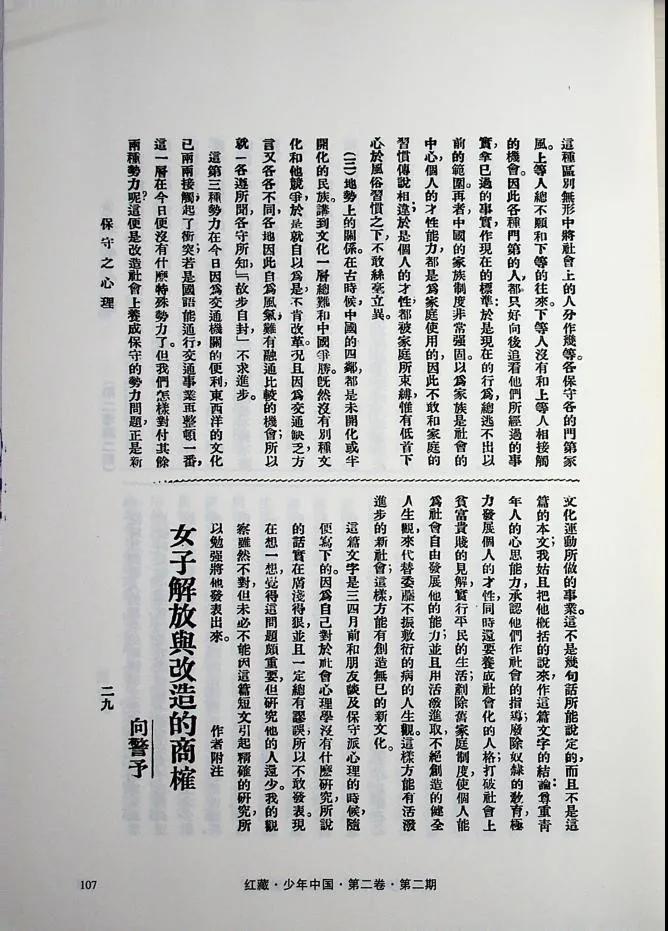 這種區別無形中將社會上的人分作幾等。各保守各的門第家
風。上等人總不願和下等的往來。下等人沒有和上等人相接觸
的機會。因此各種門第的人都只好向後追看他們所經過的事
實，拿已過的事實作現在的標準：於是現在的行爲總逃不出以
前的範圍。再者，中國的家族制度非常强固。以爲家族是社會的
中心，個人的才性能力都是爲家庭使用的，因此不敢和家庭的
習慣傳說相違；於是個人的才性，都被家庭所束縛，惟有低首下
心於風俗習慣之下，不敢絲毫立異。
（三）地勢上的關係。在古時候，中國的四鄰，都是未開化或半
開化的民族。講到文化一層總難和中國爭勝。旣然沒有別種文
化和他競爭，於是就自以爲是，不肯改革。况且因爲交通缺乏，方
言又各各不同，各地因此自爲風氣，雖有融通比較的機會；所以
就「各遵所聞各守所知」，「故步自封」不求進步。
這第三種勢力在今日因爲交通機關的便利，東西洋的文化
已兩兩接觸；起了衝突；若是國語能通行，交通事業再整頓一番，
這一層在今日便沒有什麼特殊勢力了。但我們怎樣對付其餘
兩種勢力呢？這便是改造社會上養成保守的勢力問題，正是新
保守之心理
文化運動所做的事業。這不是幾句話所能說定的，而且不是這
篇的本文；我姑且把他概括的說來，作這篇文字的結論：尊重靑
年人的心思能力，承認他們作社會的指導；廢除奴隸的敎育，極
力發展個人的才性，同時還要養成社會化的人格；打破社會上
貧富貴賤的見解，實行平民的生活；剷除舊家庭制度，使個人能
爲社會自由發展他的能力；並且用活潑進取，不絕創造的健全
人生觀，來代替委靡不振敷衍的病的人生觀。這樣方能有活潑
進步的新社會；這樣方能有創造無已的新文化。
這篇文字是三四月前和朋友談及保守派心理的時候，隨
便寫下的。因爲自己對於社會心理學沒有什麼研究，所說
的話實在膚淺得狠，並且一定總有謬誤，所以不敢發表。現
在想一想，覺得這問題頗重要，但研究他的人還少。我的觀
察雖然不對，但未必不能因這篇短文引起精確的研究，所
以勉强將他發表出來。
作者附注
女子解放與改造的商榷
向警予
二九
107
红藏·少年中国·第二卷·第二期